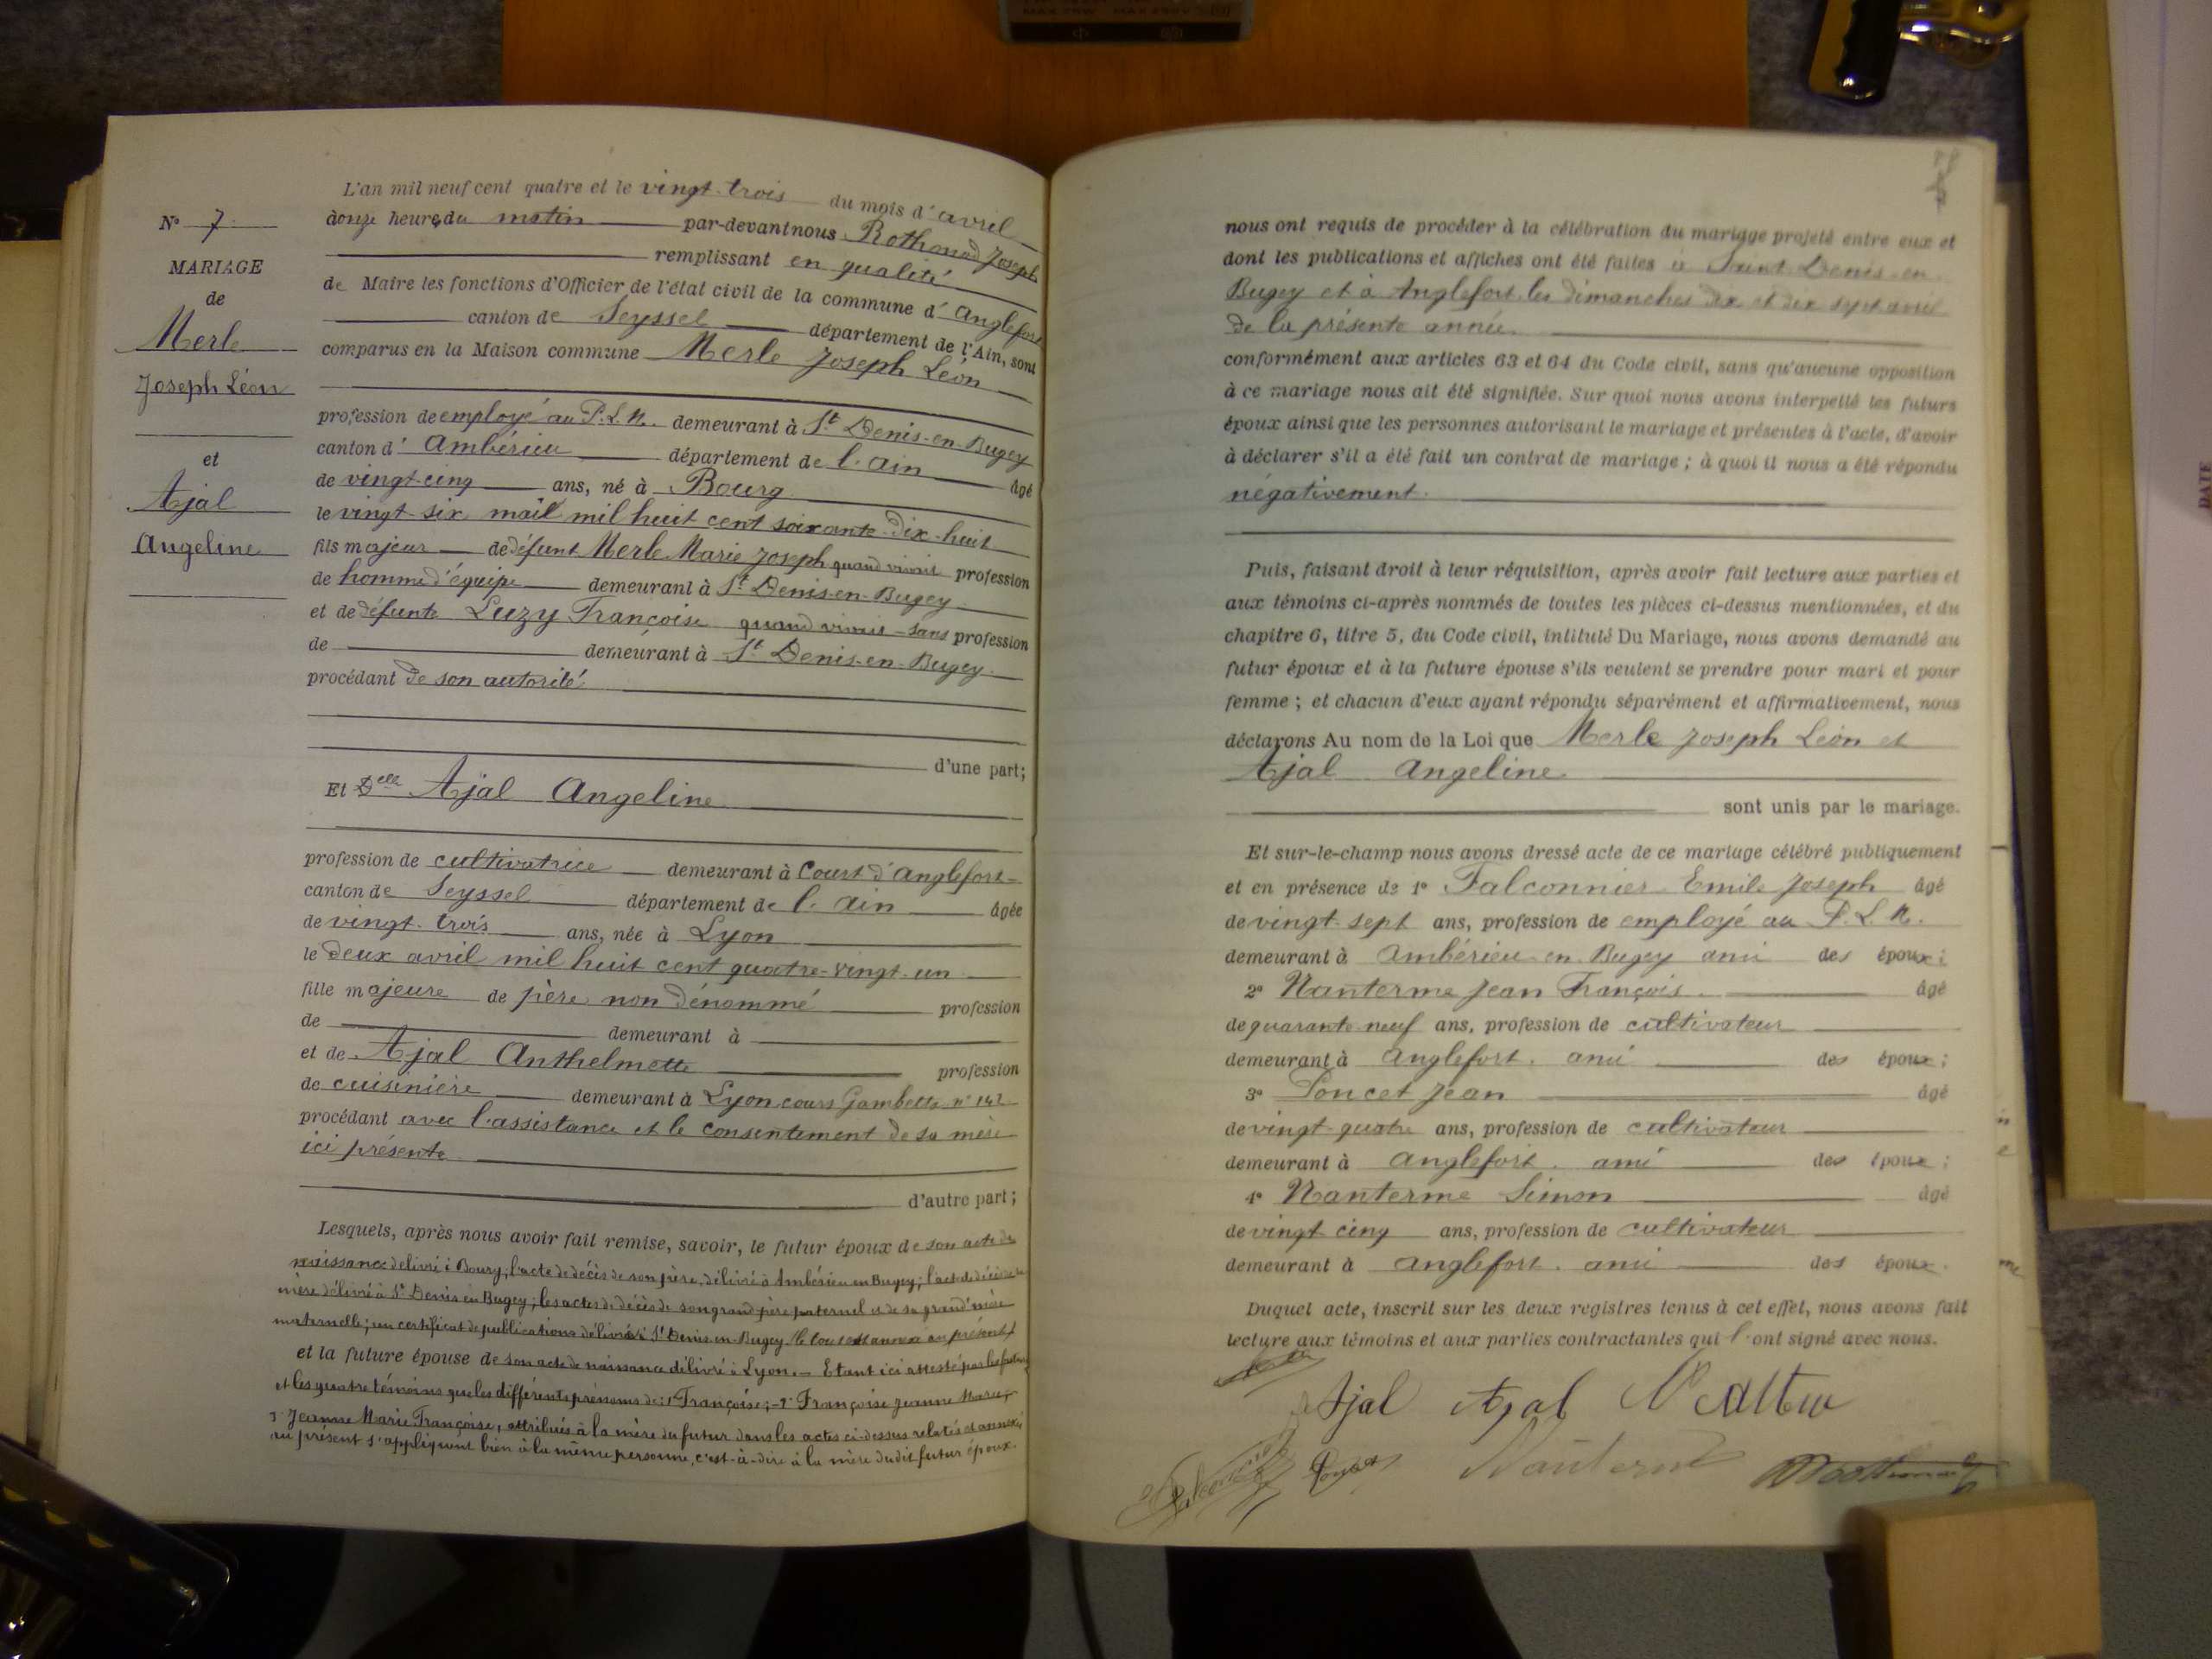 N° 7
MARIAGE
de
Merle
Joseph Léon
et
Ajal
Angeline
L'an mil neuf cent quatre et le vingt-trois du mois d'avril
à onze heures du matin par-devant nous Rothonod Joseph
remplissant en qualité
de Maire les fonctions d'Officier de l'état civil de la commune d'Anglefort
canton de Seyssel département de l'Ain, sont
comparus en la Maison commune Merle Joseph Léon
profession de employé au P.L.M. demeurant à St Denis-en-Bugey
canton d'Ambérieu département de l'Ain âgé
de vingt-cinq ans, né à Bourg
le vingt-six mai mil huit cent soixante-dix-huit
fils majeur de défunt Merle Marie Joseph quand vivait profession
de homme d'équipe demeurant à St Denis-en-Bugey
et de défunte Luzy Françoise quand vivait sans profession
de demeurant à St Denis-en-Bugey
procédant de son autorité
d'une part;
Et Delle Ajal Angeline
profession de cultivatrice demeurant à Court d'Anglefort
canton de Seyssel département de l'Ain âgée
de vingt-trois ans, née à Lyon
le deux avril mil huit cent quatre-vingt-un
fille majeure de père non dénommé profession
de demeurant à
et de Ajal Anthelmette profession
de cuisinière demeurant à Lyon cours Gambetta n° 142
procédant avec l'assistance et le consentement de sa mère
ici présente
d'autre part;
Lesquels, après nous avoir fait remise, savoir, le futur époux de son acte de
naissance délivré à Bourg; l'acte de décès de son père, délivré à Ambérieu en Bugey; l'acte de décès de sa
mère délivré à St Denis en Bugey; les actes de décès de son grand père paternel et de sa grand'mère
maternelle; un certificat de publications délivré à St Denis-en-Bugey (le tout est annexé au présent)
et la future épouse de son acte de naissance délivré à Lyon. — Etant ici attesté par les futurs
et les quatre témoins que les différents prénoms de: 1° Françoise; - 2° Françoise Jeanne Marie;
3° Jeanne Marie Françoise, attribués à la mère du futur dans les actes ci-dessus relatés et annexés
au présent s'appliquent bien à la même personne, c'est-à-dire à la mère dudit futur époux.
nous ont requis de procéder à la célébration du mariage projeté entre eux et
dont les publications et affiches ont été faites à Saint-Denis-en-
Bugey et à Anglefort les dimanches dix et dix sept avril
de la présente année.
conformément aux articles 63 et 64 du Code civil, sans qu'aucune opposition
à ce mariage nous ait été signifiée. Sur quoi nous avons interpellé les futurs
époux ainsi que les personnes autorisant le mariage et présentes à l'acte, d'avoir
à déclarer s'il a été fait un contrat de mariage; à quoi il nous a été répondu
négativement.
Puis, faisant droit à leur réquisition, après avoir fait lecture aux parties et
aux témoins ci-après nommés de toutes les pièces ci-dessus mentionnées, et du
chapitre 6, titre 5, du Code civil, intitulé Du Mariage, nous avons demandé au
futur époux et à la future épouse s'ils veulent se prendre pour mari et pour
femme; et chacun d'eux ayant répondu séparément et affirmativement, nous
déclarons Au nom de la Loi que Merle Joseph Léon et
Ajal Angeline
sont unis par le mariage.
Et sur-le-champ nous avons dressé acte de ce mariage célébré publiquement
et en présence de 1° Falconnier Emile Joseph âgé
de vingt-sept ans, profession de employé au P.L.M.
demeurant à Ambérieu en Bugey ami des époux;
2° Nanterme Jean François âgé
de quarante-neuf ans, profession de cultivateur
demeurant à Anglefort, ami des époux;
3° Poncet Jean âgé
de vingt-quatre ans, profession de cultivateur
demeurant à Anglefort, ami des époux;
4° Nanterme Simon âgé
de vingt cinq ans, profession de cultivateur
demeurant à Anglefort, ami des époux.
Duquel acte, inscrit sur les deux registres tenus à cet effet, nous avons fait
lecture aux témoins et aux parties contractantes qui l'ont signé avec nous.
Ajal Ajal
Falconnier Poncet Nanterme Rothonod
DATE